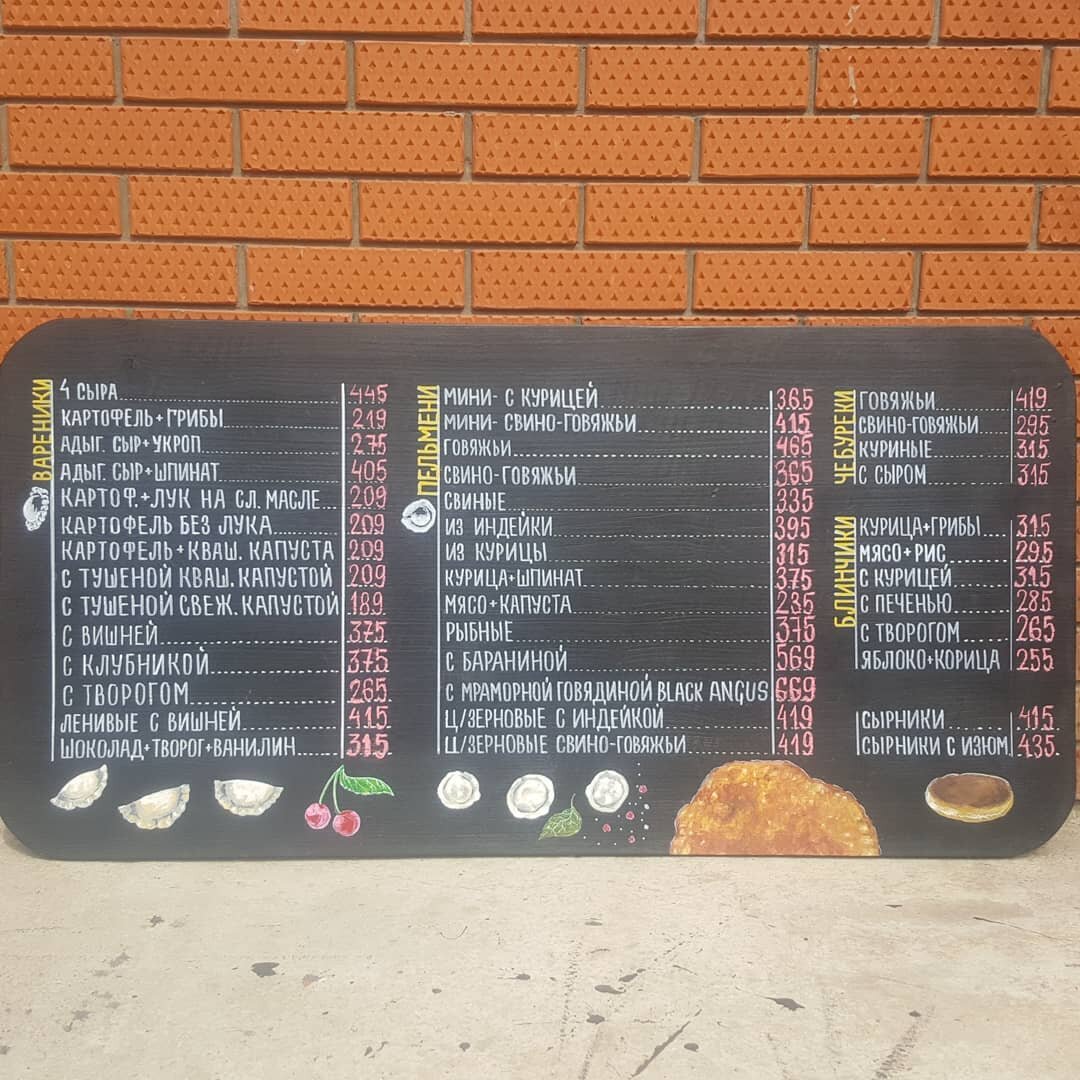 ВАРЕНИКИ
4 СЫРА 445
КАРТОФЕЛЬ+ГРИБЫ 219
АДЫГ. СЫР+УКРОП 275
АДЫГ. СЫР+ШПИНАТ 405
КАРТОФ.+ЛУК НА СЛ. МАСЛЕ 209
КАРТОФЕЛЬ БЕЗ ЛУКА 209
КАРТОФЕЛЬ+КВАШ. КАПУСТА 209
С ТУШЕНОЙ КВАШ. КАПУСТОЙ 209
С ТУШЕНОЙ СВЕЖ. КАПУСТОЙ 189
С ВИШНЕЙ 375
С КЛУБНИКОЙ 375
С ТВОРОГОМ 265
ЛЕНИВЫЕ С ВИШНЕЙ 415
ШОКОЛАД+ТВОРОГ+ВАНИЛИН 315
ПЕЛЬМЕНИ
МИНИ- С КУРИЦЕЙ 365
МИНИ- СВИНО-ГОВЯЖЬИ 415
ГОВЯЖЬИ 465
СВИНО-ГОВЯЖЬИ 365
СВИНЫЕ 335
ИЗ ИНДЕЙКИ 395
ИЗ КУРИЦЫ 315
КУРИЦА+ШПИНАТ 375
МЯСО+КАПУСТА 235
РЫБНЫЕ 375
С БАРАНИНОЙ 569
С МРАМОРНОЙ ГОВЯДИНОЙ BLACK ANGUS 669
Ц/ЗЕРНОВЫЕ С ИНДЕЙКОЙ 419
Ц/ЗЕРНОВЫЕ СВИНО-ГОВЯЖЬИ 419
ЧЕБУРЕКИ
ГОВЯЖЬИ 419
СВИНО-ГОВЯЖЬИ 295
КУРИНЫЕ 315
С СЫРОМ 315
БЛИНЧИКИ
КУРИЦА+ГРИБЫ 315
МЯСО+РИС 295
С КУРИЦЕЙ 315
С ПЕЧЕНЬЮ 285
С ТВОРОГОМ 265
ЯБЛОКО+КОРИЦА 255
СЫРНИКИ 415
СЫРНИКИ С ИЗЮМ. 435